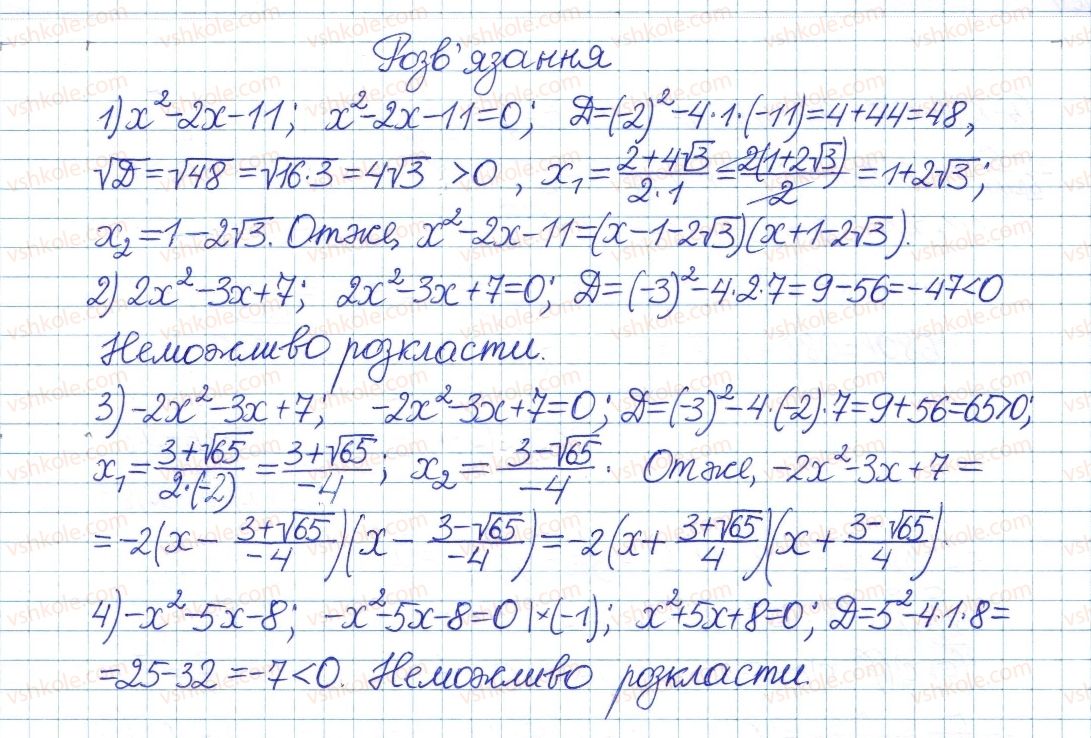 Розв'язання
1) x²-2x-11; x²-2x-11=0; D=(-2)²-4·1·(-11)=4+44=48,
√D=√48=√16·3=4√3 >0, x₁=(2+4√3)/(2·1)=2(1+2√3)/2=1+2√3;
x₂=1-2√3. Отже, x²-2x-11=(x-1-2√3)(x+1-2√3).
2) 2x²-3x+7; 2x²-3x+7=0; D=(-3)²-4·2·7=9-56=-47<0
Неможливо розкласти.
3) -2x²-3x+7; -2x²-3x+7=0; D=(-3)²-4·(-2)·7=9+56=65>0;
x₁=(3+√65)/(2·(-2))=(3+√65)/(-4); x₂=(3-√65)/(-4). Отже, -2x²-3x+7=
=-2(x-(3+√65)/(-4))(x-(3-√65)/(-4))=-2(x+(3+√65)/4)(x+(3-√65)/4).
4) -x²-5x-8; -x²-5x-8=0 |×(-1); x²+5x+8=0; D=5²-4·1·8=
=25-32=-7<0. Неможливо розкласти.
vshkole.com